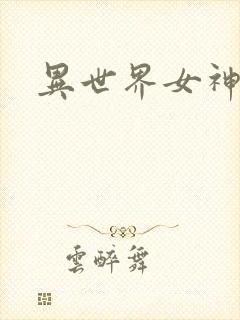 異世界女神
雲醉舞